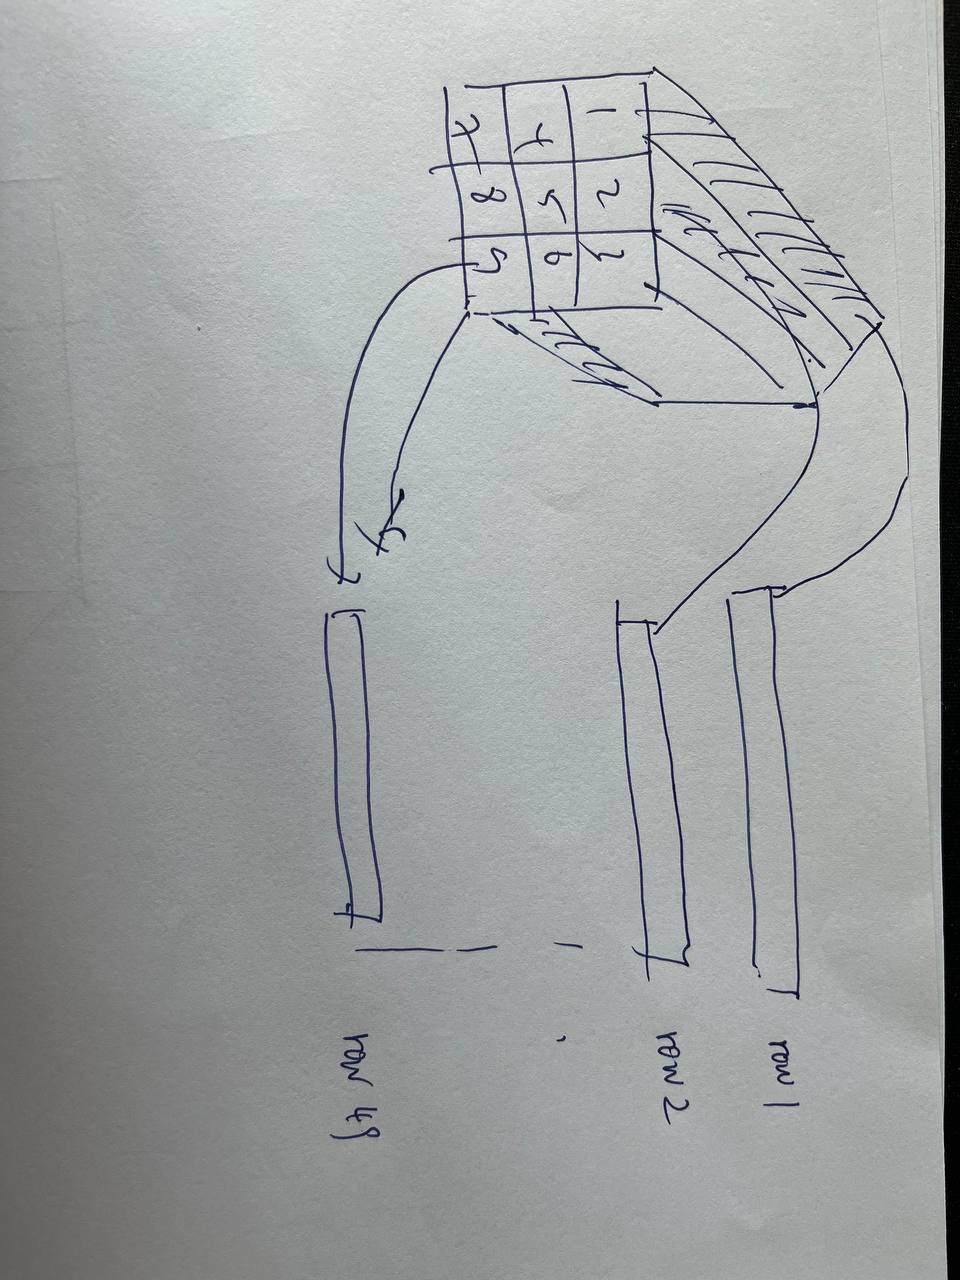 1 2 3
4 5 6
7 8 9
row 1
row 2
row 49